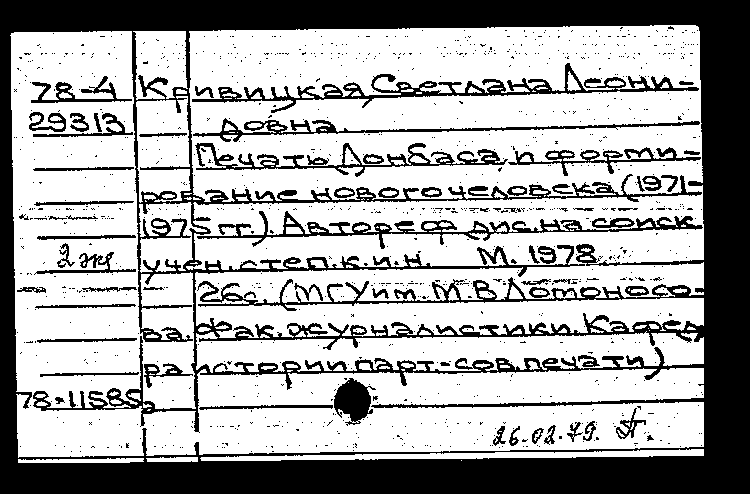 78-4 Кривицкая, Светлана Леони-
29313 довна.
Печать Донбаса и форми-
рование нового человека (1971-
1975 гг.). Автореф. дис. на соиск.
2 экз учен. степ. к.и.н. М., 1978
26с. (МГУ им. М.В Ломоносо-
ва. Фак. журналистики. Кафед-
ра истории парт.-сов. печати)
78-11585а
26.02.79.